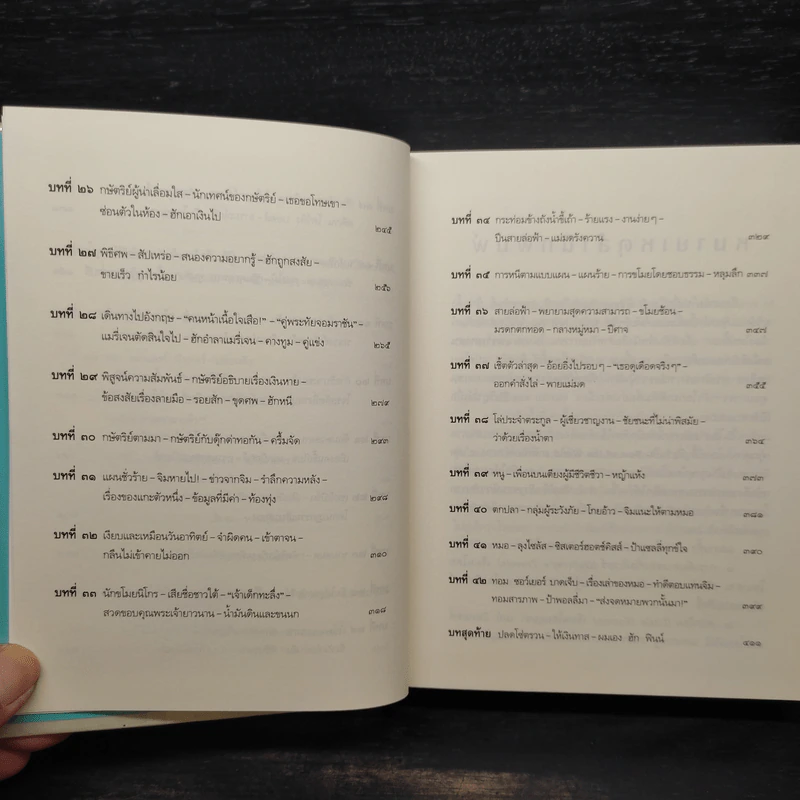 บทที่ ๒๖ กษัตริย์ผู้น่าเลื่อมใส – นักเทศน์ของกษัตริย์ – เธอขอโทษเขา –
ซ่อนตัวในห้อง – ฮักเอาเงินไป ๒๔๕
บทที่ ๒๗ พิธีศพ – สัปเหร่อ – สนองความอยากรู้ – ฮักถูกสงสัย –
ขายเร็ว กำไรน้อย ๒๕๖
บทที่ ๒๘ เดินทางไปอังกฤษ – "คนหน้าเนื้อใจเสือ!" – "คู่พระทัยจอมราชัน" –
แมรี่เจนตัดสินใจไป – ฮักอำลาแมรี่เจน – คางทูม – คู่แข่ง ๒๖๕
บทที่ ๒๙ พิสูจน์ความสัมพันธ์ – กษัตริย์อธิบายเรื่องเงินหาย –
ข้อสงสัยเรื่องลายมือ – รอยสัก – ขุดศพ – ฮักหนี ๒๗๙
บทที่ ๓๐ กษัตริย์ตามมา – กษัตริย์กับดุ๊กด่าทอกัน – ครึ้มจัด ๒๙๓
บทที่ ๓๑ แผนชั่วร้าย – จิมหายไป! – ข่าวจากจิม – รำลึกความหลัง –
เรื่องของแกะตัวหนึ่ง – ข้อมูลที่มีค่า – ท้องทุ่ง ๒๙๘
บทที่ ๓๒ เงียบและเหมือนวันอาทิตย์ – จำผิดคน – เข้าตาจน –
กลืนไม่เข้าคายไม่ออก ๓๑๐
บทที่ ๓๓ นักขโมยนิโกร – เสียชื่อชาวใต้ – "เจ้าเด็กทะลึ่ง" –
สวดขอบคุณพระเจ้ายาวนาน – น้ำมันดินและขนนก ๓๑๘
บทที่ ๓๔ กระท่อมข้างถังน้ำขี้เถ้า – ร้ายแรง – งานง่ายๆ –
ปีนสายล่อฟ้า – แม่มดรังควาน ๓๒๙
บทที่ ๓๕ การหนีตามแบบแผน – แผนร้าย – การขโมยโดยชอบธรรม – หลุมลึก ๓๓๗
บทที่ ๓๖ สายล่อฟ้า – พยายามสุดความสามารถ – ขโมยช้อน –
มรดกตกทอด – กลางหมู่หมา – ปีศาจ ๓๔๗
บทที่ ๓๗ เชิ้ตตัวล่าสุด – อ้อยอิ่งไปรอบๆ – "เธอดุเดือดจริงๆ" –
ออกคำสั่งไล่ – พายแม่มด ๓๕๕
บทที่ ๓๘ โล่ประจำตระกูล – ผู้เชี่ยวชาญงาน – ชัยชนะที่ไม่น่าพิสมัย –
ว่าด้วยเรื่องน้ำตา ๓๖๔
บทที่ ๓๙ หนู – เพื่อนบนเตียงผู้มีชีวิตชีวา – หญ้าแห้ง ๓๗๓
บทที่ ๔๐ ตกปลา – กลุ่มผู้ระวังภัย – โกยอ้าว – จิมแนะให้ตามหมอ ๓๘๑
บทที่ ๔๑ หมอ – ลุงไซลัส – ซิสเตอร์ฮอตช์คิสส์ – ป้าแซลลี่ทุกข์ใจ ๓๙๐
บทที่ ๔๒ ทอม ซอว์เยอร์ บาดเจ็บ – เรื่องเล่าของหมอ – ทำดีตอบแทนจิม –
ทอมสารภาพ – ป้าพอลลี่มา – "ส่งจดหมายพวกนั้นมา!" ๓๙๙
บทสุดท้าย ปลดโซ่ตรวน – ให้เงินทาส – ผมเอง ฮัก ฟินน์ ๔๑๑